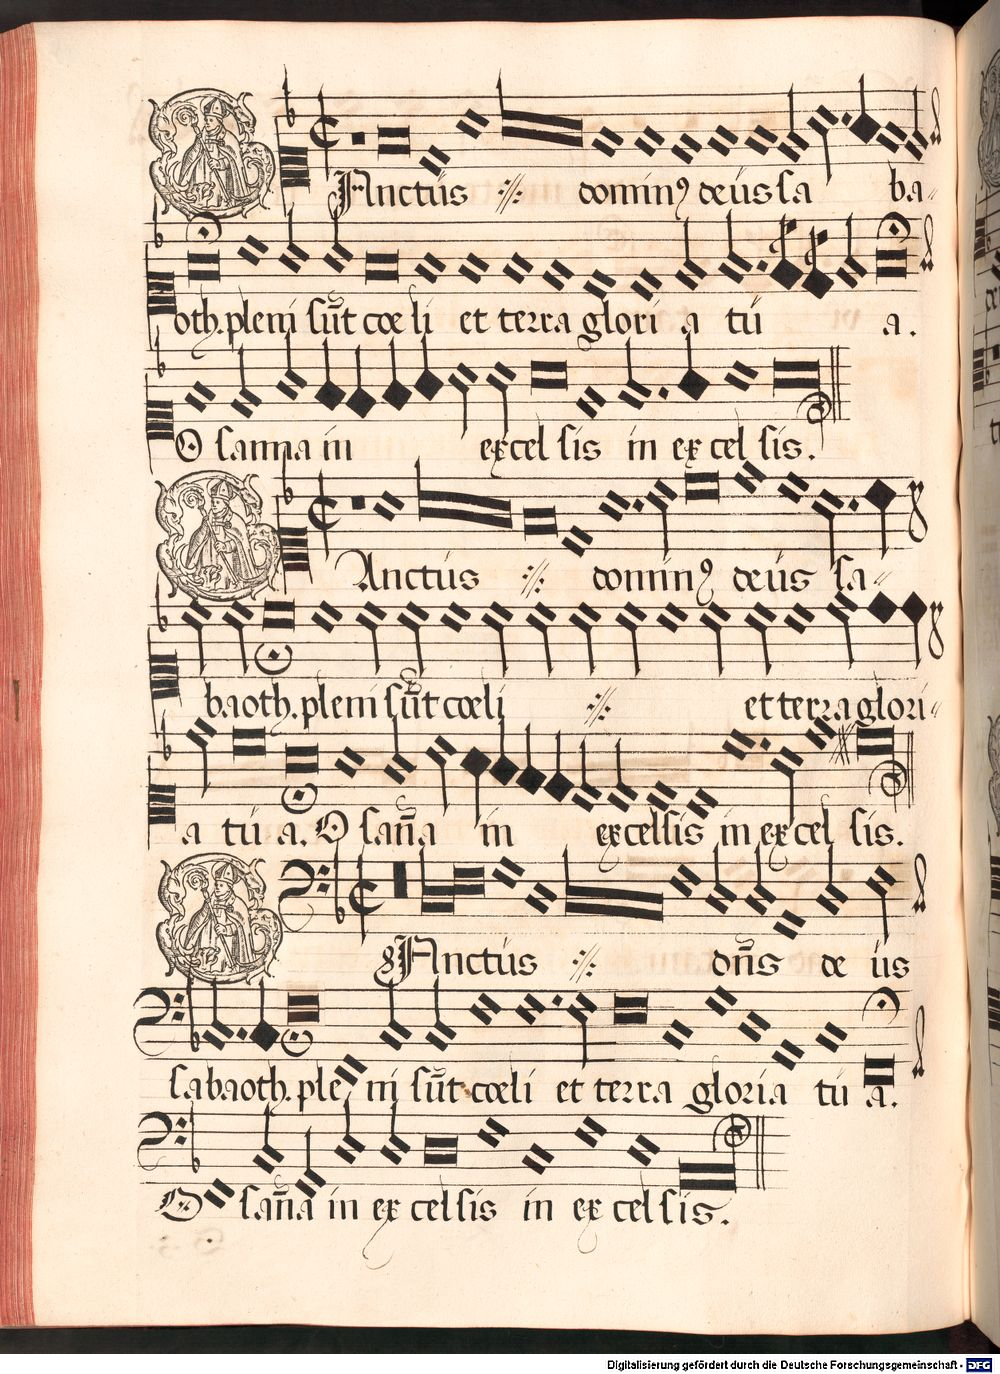 SAnctus ·//· dominꝯ deus sa ba=
oth. pleni sūt cœli et terra glori a tu a.
O sanna in excelsis in excelsis.
Anctus ·//· dominꝯ deus sa=
baoth. pleni sūt cœli ·//· et terra glori=
a tu a. O sana̅ in excelsis in excelsis.
SAnctus ·//· dōns de us
sabaoth. ple ni sūt cœli et terra gloria tu a.
O sana̅ in excelsis in excelsis.
Digitalisierung gefördert durch die Deutsche Forschungsgemeinschaft - DFG